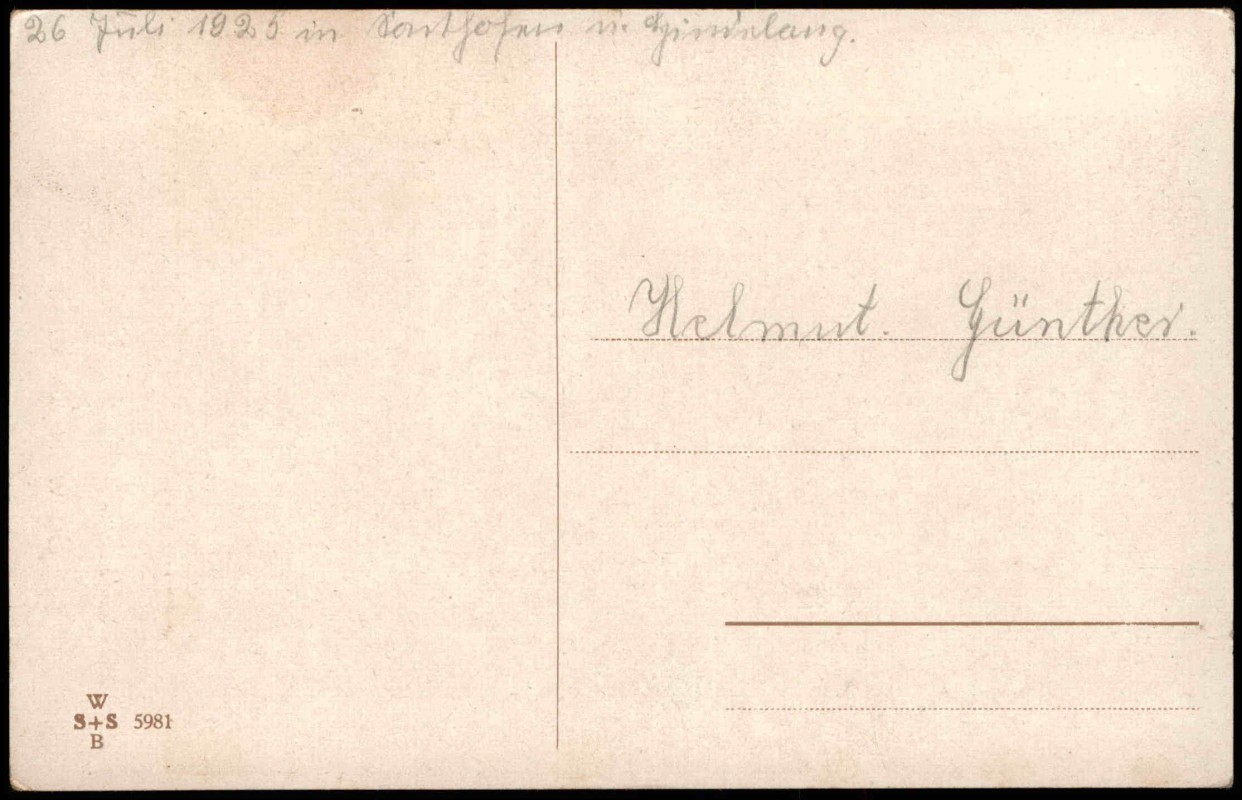 26 Juli 1925 in Sonthofen u. Hindelang.
Helmut. Günther.
W
S+S 5981
B